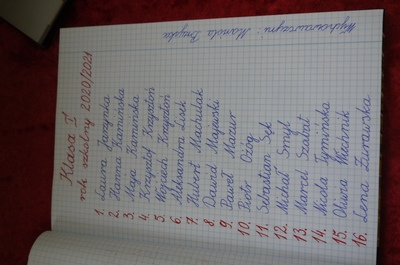 Klasa I
rok szkolny 2020/2021
1. Laura Jarzynka
2. Hanna Kamińska
3. Maja Kamińska
4. Krzysztof Krzysztoń
5. Wojciech Krzysztoń
6. Aleksandra Lisek
7. Hubert Machulak
8. Dawid Majewski
9. Paweł Mazur
10. Piotr Ożóg
11. Sebastian Sęk
12. Michał Smyl
13. Marcel Szabat
14. Nicola Tymińska
15. Oliwia Wachnik
16. Lena Żurawska
Wychowawczyni: Mariola